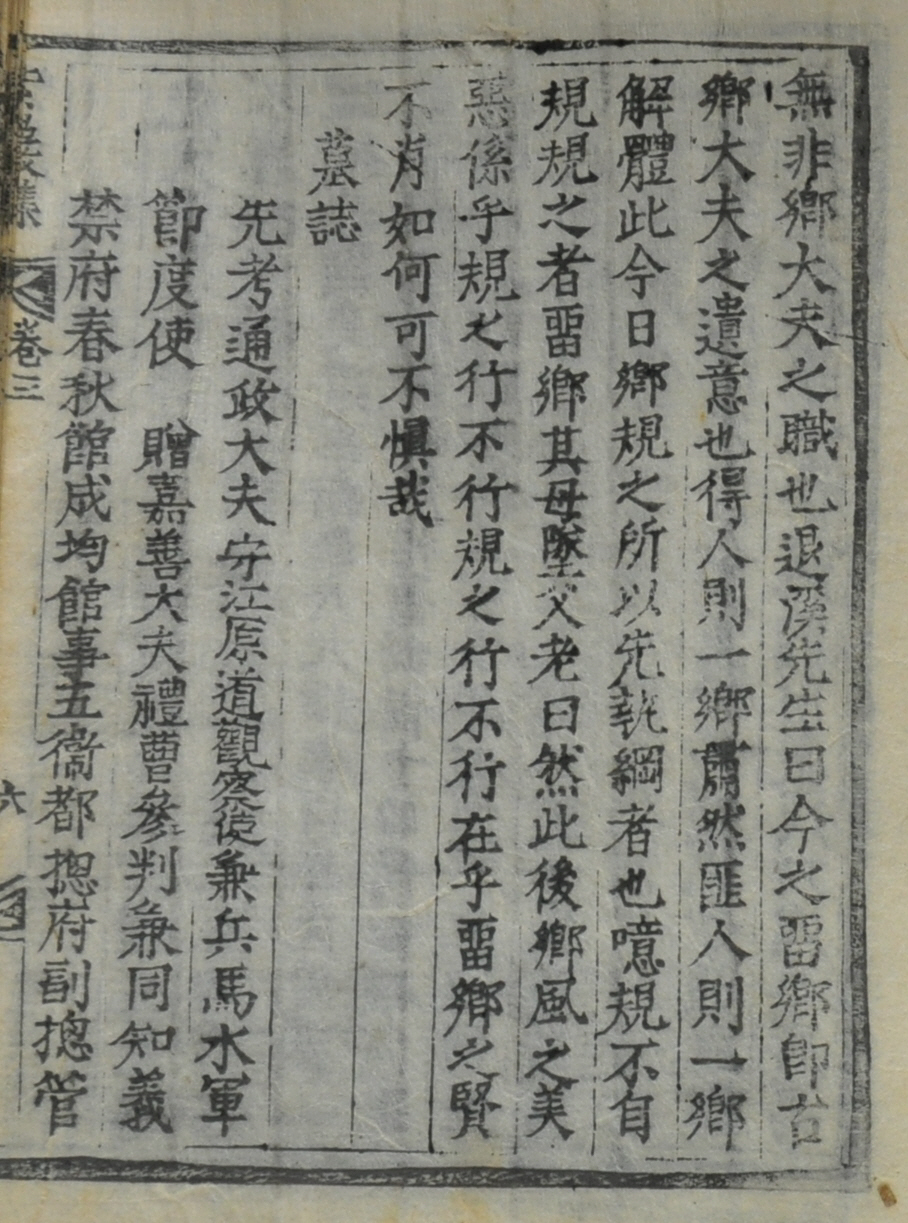 無非鄉大夫之職也退溪先生曰今之畱鄉卽古
鄉大夫之遺意也得人則一鄉肅然匪人則一鄉
解體此今日鄉規之所以先執綱者也噫規不自
規規之者畱鄉其毋墜父老曰然此後鄉風之美
惡係乎規之行不行規之行不行在乎畱鄉之賢
不肖如何可不懼哉
墓誌
先考通政大夫守江原道觀察使兼兵馬水軍
節度使 贈嘉善大夫禮曹參判兼同知義
禁府春秋館成均館事五衛都摠府副摠管
卷三
六